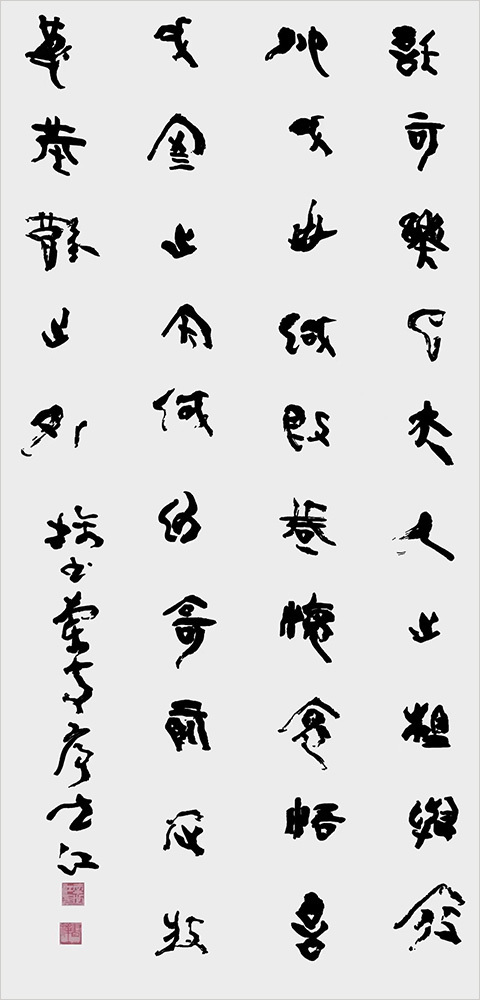 信可樂也夫人之相與俯
仰一世或取諸懷抱悟言
一室之內或因寄所託放
浪形骸之外
書蘭亭序 江